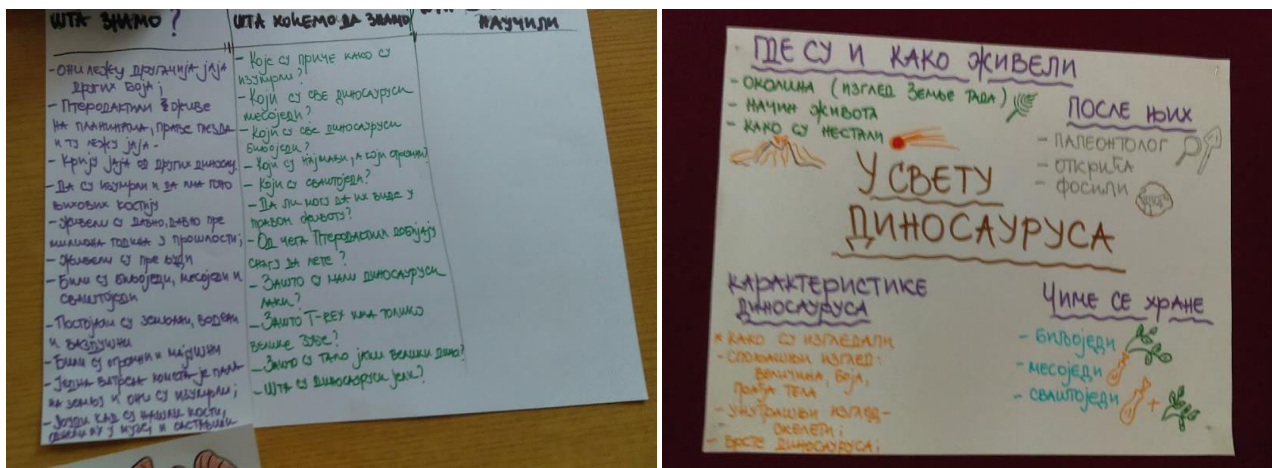 ШТА ЗНАМО?
- ОНИ ЛЕЖУ ДРУГАЧИЈА ЈАЈА
ДРУГИХ БОЈА;
- ПТЕРОДАКТИЛИ ЖИВЕ
НА ПЛАНИНАМА, ПРАВЕ ГНЕЗДА
И ТУ ЛЕЖУ ЈАЈА -
- КРИЈУ ЈАЈА ОД ДРУГИХ ДИНОСАУ.
- ДА СУ ИЗУМРЛИ И ДА ИМА ПУНО
ЊИХОВИХ КОСТИЈУ
- ЖИВЕЛИ СУ ДАВНО, ДАВНО ПРЕ
МИЛИОНА ГОДИНА У ПРОШЛОСТИ;
- ЖИВЕЛИ СУ ПРЕ ЉУДИ
- БИЛИ СУ БИЉОЈЕДИ, МЕСОЈЕДИ И
СВАШТОЈЕДИ
- ПОСТОЈАЛИ СУ ЗЕМЉАНИ, ВОДЕНИ
И ВАЗДУШНИ
- БИЛИ СУ ОГРОМНИ И МАЈУШНИ
- ЈЕДНА ВАТРЕНА КОМЕТА ЈЕ ПАЛА
НА ЗЕМЉУ И ОНИ СУ ИЗУМРЛИ;
- ЉУДИ КАД СУ НАШЛИ КОСТИ,
ОДНЕЛИ ИХ У МУЗЕЈ И САСТАВИЛИ
ШТА ХОЋЕМО ДА ЗНАМО
- КОЈЕ СУ ПРИЧЕ КАКО СУ
ИЗУМРЛИ?
- КОЈИ СУ СВЕ ДИНОСАУРУСИ
МЕСОЈЕДИ?
- КОЈИ СУ СВЕ ДИНОСАУРУСИ
БИЉОЈЕДИ?
- КОЈИ СУ НАЈМАЊИ, А КОЈИ ОГРОМНИ
- КОЈИ СУ СВАШТОЈЕДИ?
- ДА ЛИ МОГУ ДА ИХ ВИДЕ У
ПРАВОМ ЖИВОТУ?
- ОД ЧЕГА ПТЕРОДАКТИЛИ ДОБИЈАЈУ
СНАГУ ДА ЛЕТЕ?
- ЗАШТО СУ МАЛИ ДИНОСАУРУСИ
ЛАКИ?
- ЗАШТО T-REX ИМА ТОЛИКО
ВЕЛИКЕ ЗУБЕ?
- ЗАШТО СУ ТАКО ЈАКИ ВЕЛИКИ ДИНО?
- ШТА СУ ДИНОСАУРУСИ ЈЕЛИ?
НАУЧИЛИ
ГДЕ СУ И КАКО ЖИВЕЛИ
- ОКОЛИНА (ИЗГЛЕД ЗЕМЉЕ ТАДА)
- НАЧИН ЖИВОТА
- КАКО СУ НЕСТАЛИ
ПОСЛЕ ЊИХ
- ПАЛЕОНТОЛОГ
- ОТКРИЋА
- ФОСИЛИ
У СВЕТУ
ДИНОСАУРУСА
КАРАКТЕРИСТИКЕ
ДИНОСАУРУСА
* КАКО СУ ИЗГЛЕДАЛИ
- СПОЉАШЊИ ИЗГЛЕД:
ВЕЛИЧИНА, БОЈА,
ГРАЂА ТЕЛА
- УНУТРАШЊИ ИЗГЛЕД -
СКЕЛЕТИ;
- ВРСТЕ ДИНОСАУРУСА;
ЧИМЕ СЕ ХРАНЕ
- БИЉОЈЕДИ
- МЕСОЈЕДИ
- СВАШТОЈЕДИ +